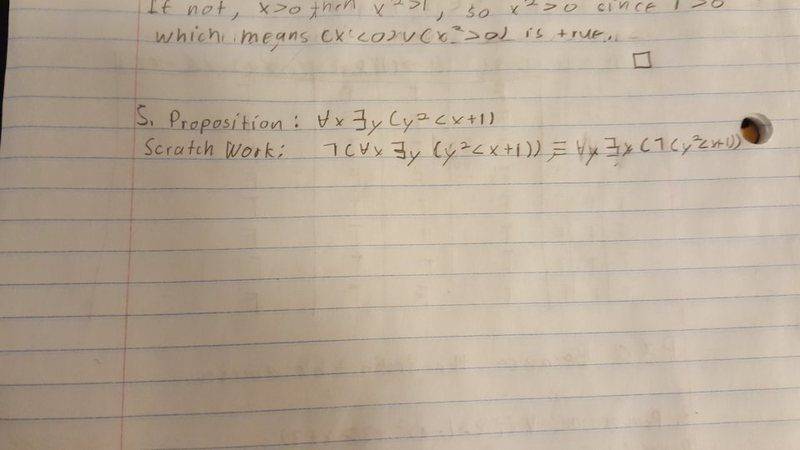 If not, x>0 then x²>1, so x²>0 since 1>0
which means (x<0)∨(x²>0) is true.
□
5. Proposition: ∀x∃y(y²<x+1)
Scratch Work: ¬(∀x ∃y (y²<x+1)) ≡ ∀y ∃x (¬(y²<x+1))